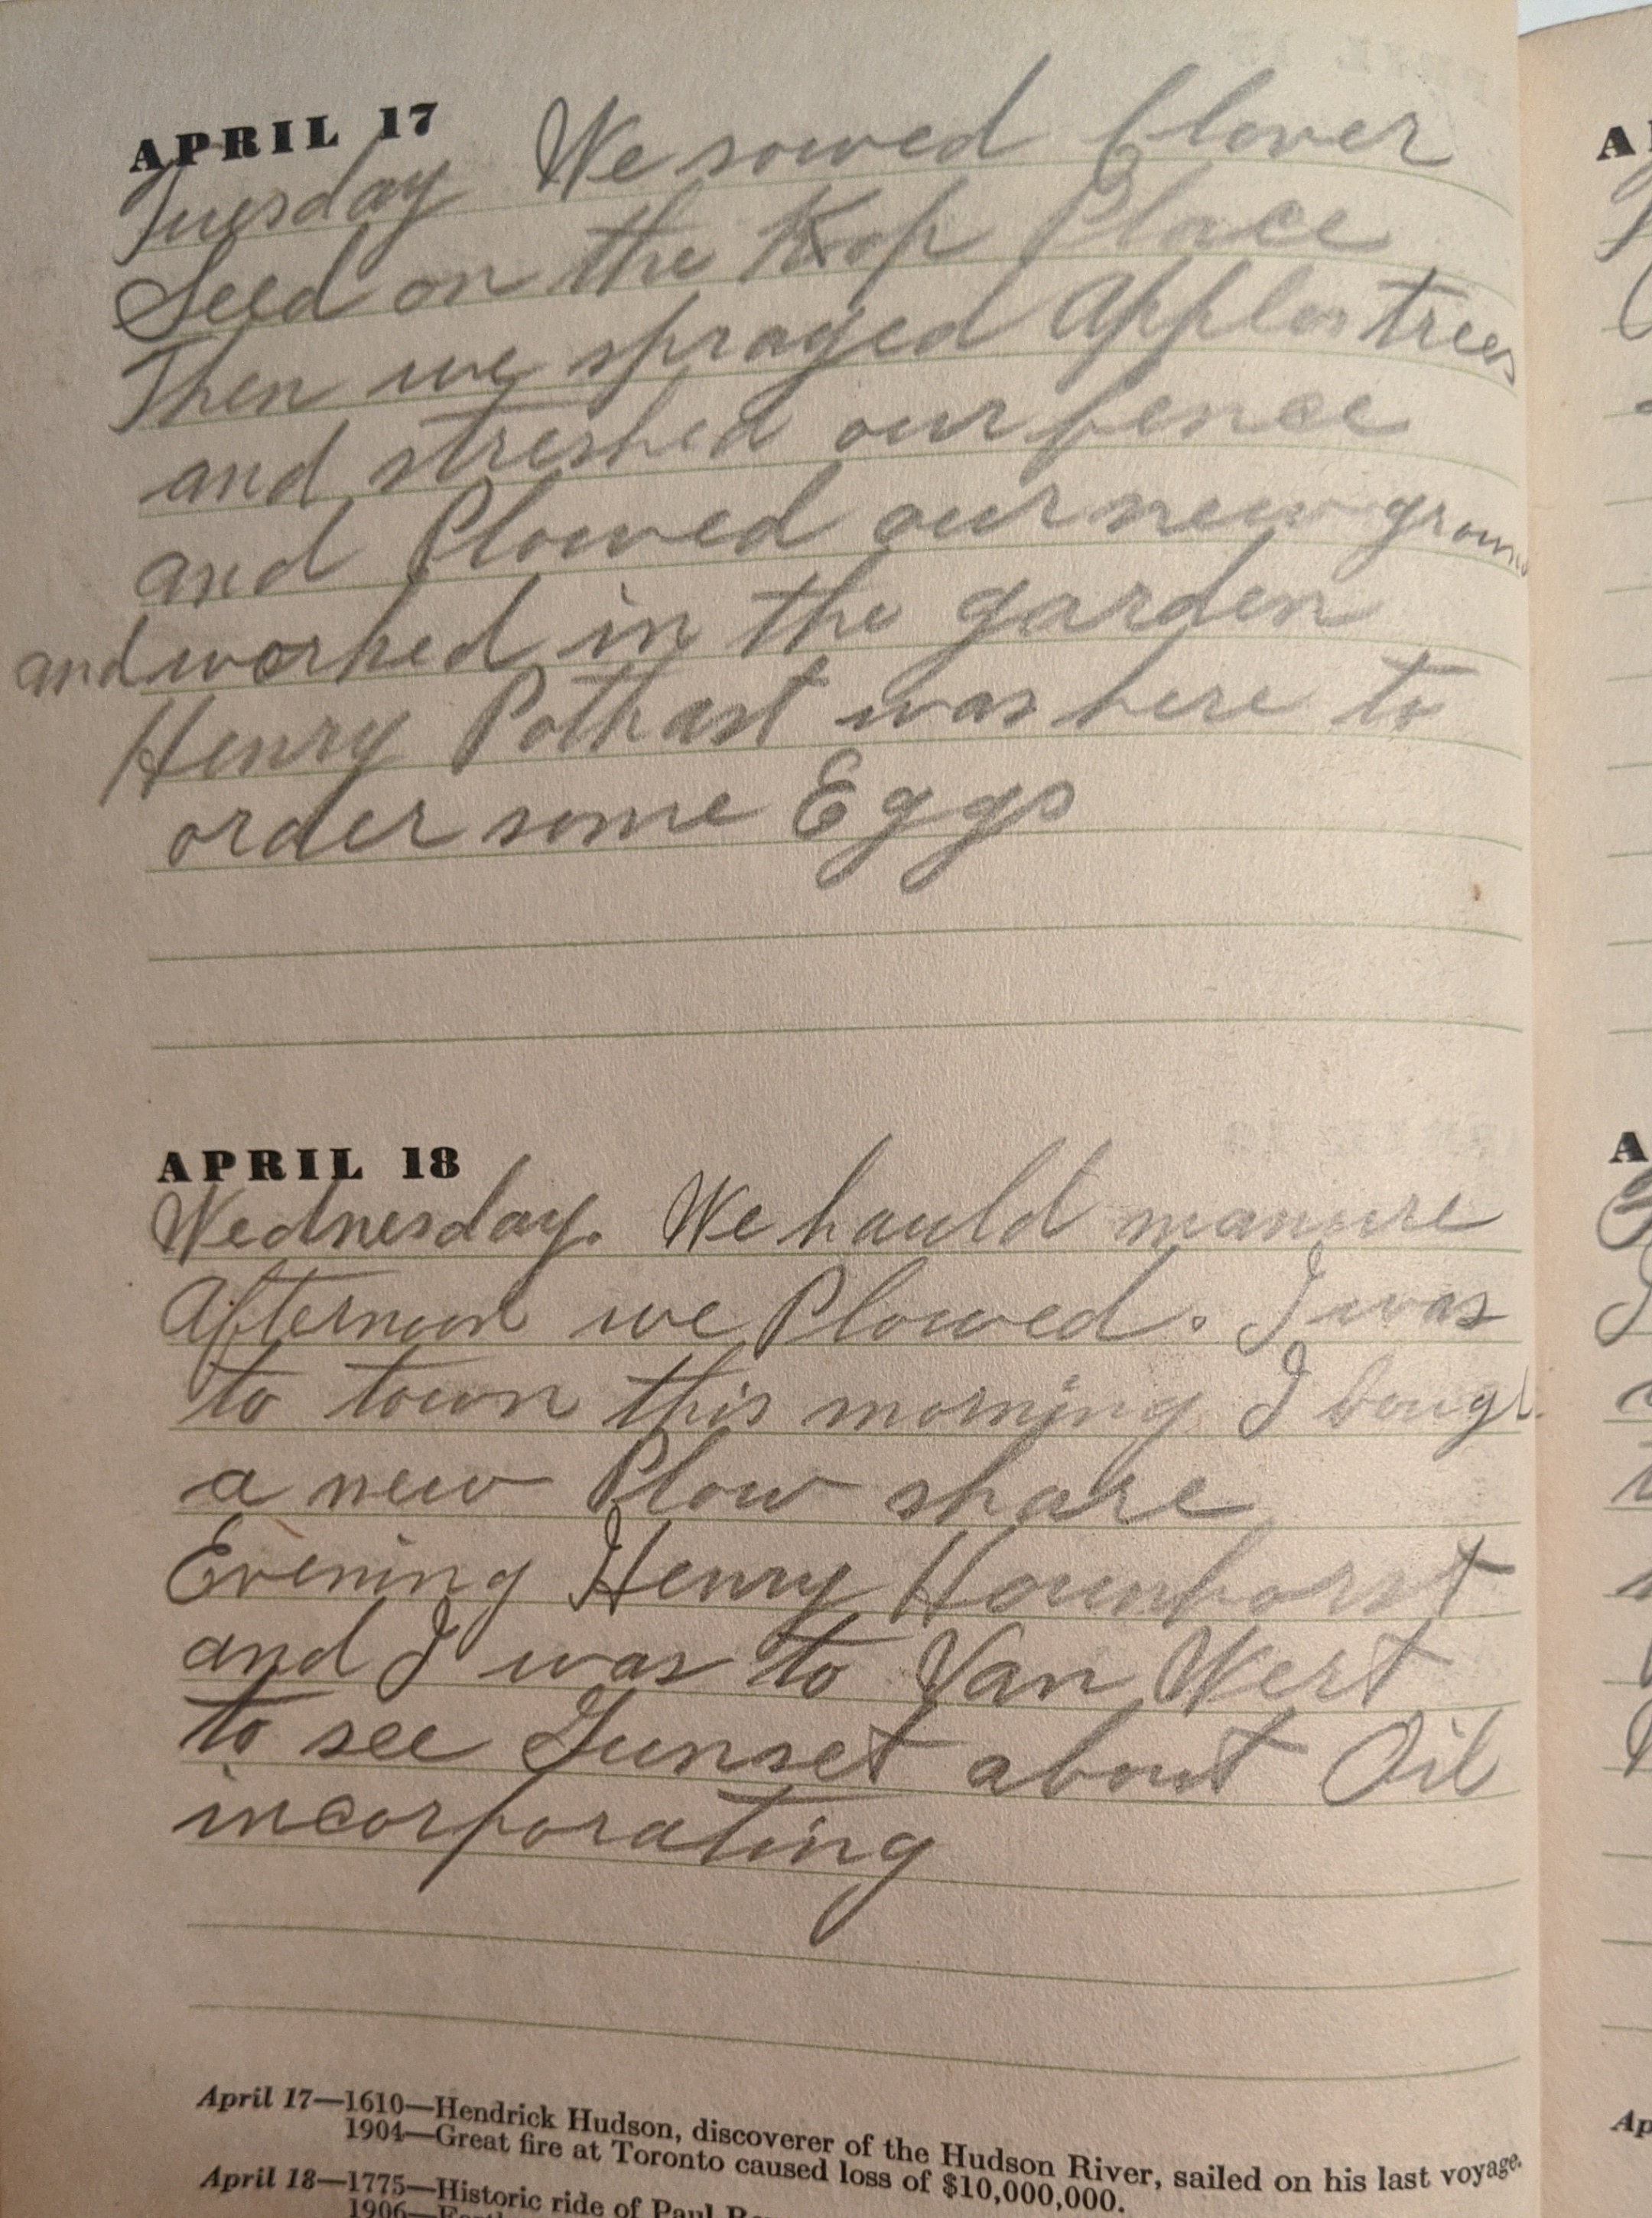 APRIL 17
Tuesday We sowed Clover
Seed on the Kop Place
Then we sprayed Apples trees
and streshed our fence
and Plowed our new groun
and worked in the garden
Henry Pothast was here to
order some Eggs
APRIL 18
Wednesday. We hauld manure
Afternoon we Plowed. I was
to town this morning I bough
a new Plow share
Evening Henry
and I was to Van Wert
to see Gunset about Oil
incorporating
April 17—1610—Hendrick Hudson, discoverer of the Hudson River, sailed on his last voyage.
1904—Great fire at Toronto caused loss of $10,000,000.
April 18—1775—Historic ride of Paul
1906—